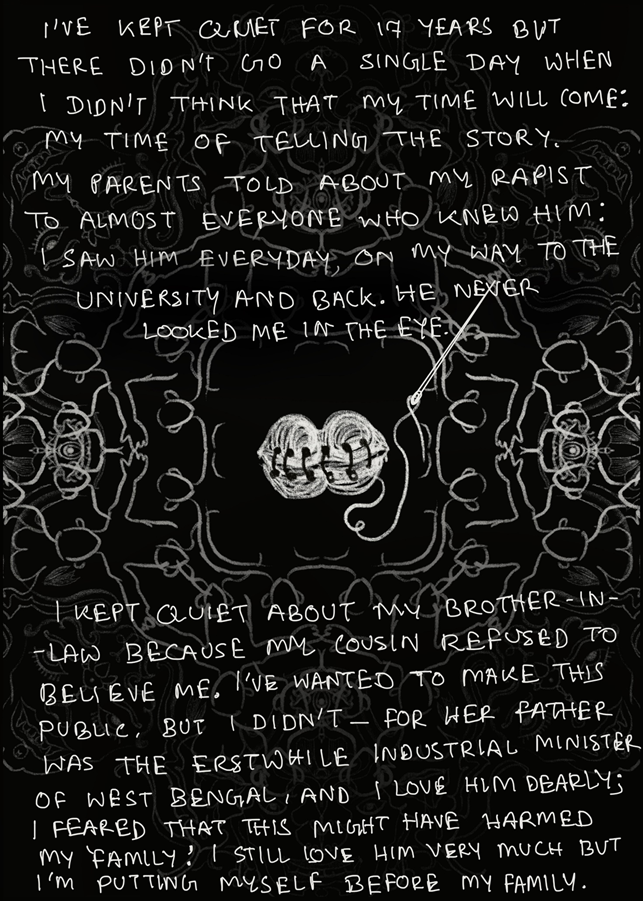 I'VE KEPT QUIET FOR 17 YEARS BUT
THERE DIDN'T GO A SINGLE DAY WHEN
I DIDN'T THINK THAT MY TIME WILL COME:
MY TIME OF TELLING THE STORY.
MY PARENTS TOLD ABOUT MY RAPIST
TO ALMOST EVERYONE WHO KNEW HIM:
I SAW HIM EVERYDAY, ON MY WAY TO THE
UNIVERSITY AND BACK. HE NEVER
LOOKED ME IN THE EYE.
I KEPT QUIET ABOUT MY BROTHER-IN-
-LAW BECAUSE MY COUSIN REFUSED TO
BELIEVE ME. I'VE WANTED TO MAKE THIS
PUBLIC, BUT I DIDN'T — FOR HER FATHER
WAS THE ERSTWHILE INDUSTRIAL MINISTER
OF WEST BENGAL, AND I LOVE HIM DEARLY;
I FEARED THAT THIS MIGHT HAVE HARMED
MY 'FAMILY'. I STILL LOVE HIM VERY MUCH BUT
I'M PUTTING MYSELF BEFORE MY FAMILY.